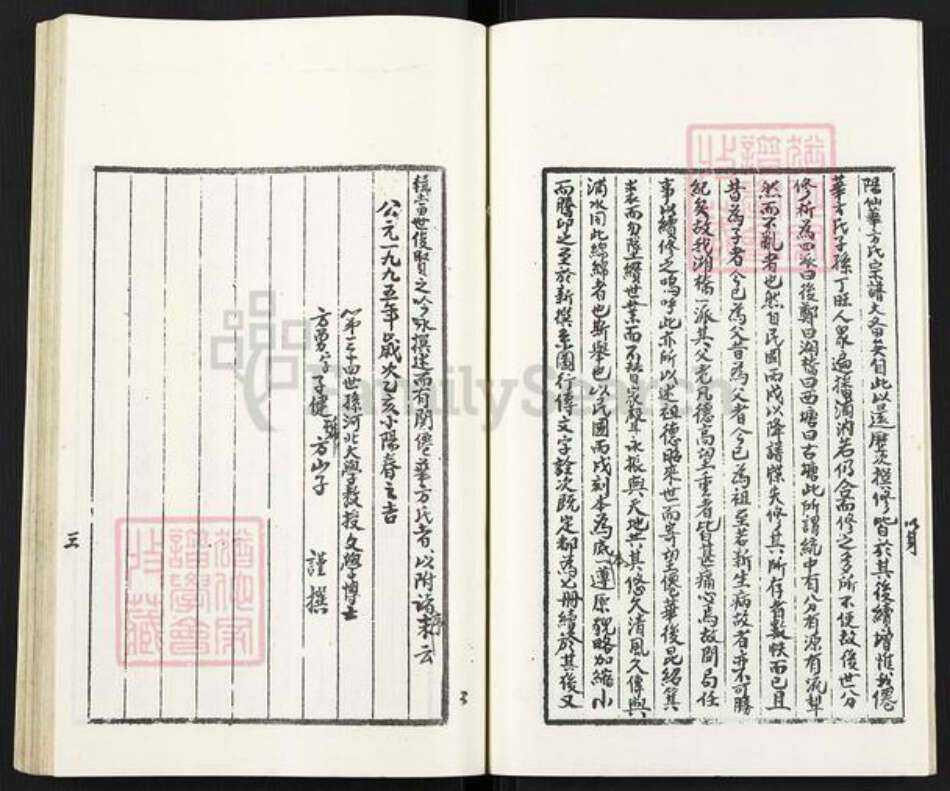 陽仙華方氏宗譜大备矣自此以還歷次增修皆於其後續增惟我僊
華方氏子孫丁旺人眾遍據濁汭若仍合而修之多所不便故後世分
修析為四派曰後鄭曰湖塘曰西塘曰古塘此所謂統中有分有源有流犁
然而不亂者也然自民國丙戌以降譜牒失修其所存者數帙而已且
昔為子者今已為父昔為父者今已為祖至若新生病故者亦不可勝
紀矣故我湖塘一派其父老凡德高望重者皆甚痛心焉故間局任
事以續修之嗚呼此亦所以述祖德昭來世而寄望僊華後昆紹箕
裘而勿墜纘世業而不替家聲永振與天地共其悠久清風久傳與
滿水同此綿綿者也斯舉也以民國丙戌刻本為底本一遵原貌略加縮小
而膳印之至於新撰系圖行傳文字詮次既定都為 冊續於其後又
輯當世後賢之吟咏撰述而有關僊華方氏者以附諸末云
公元一九九五年歲次乙亥小陽春之吉
第三十四世孫河北大學教授文學博士
方勇字子健號方山子 謹撰
三
3
猶他家譜學會收藏
猶他家譜學會收藏
FamilySearch